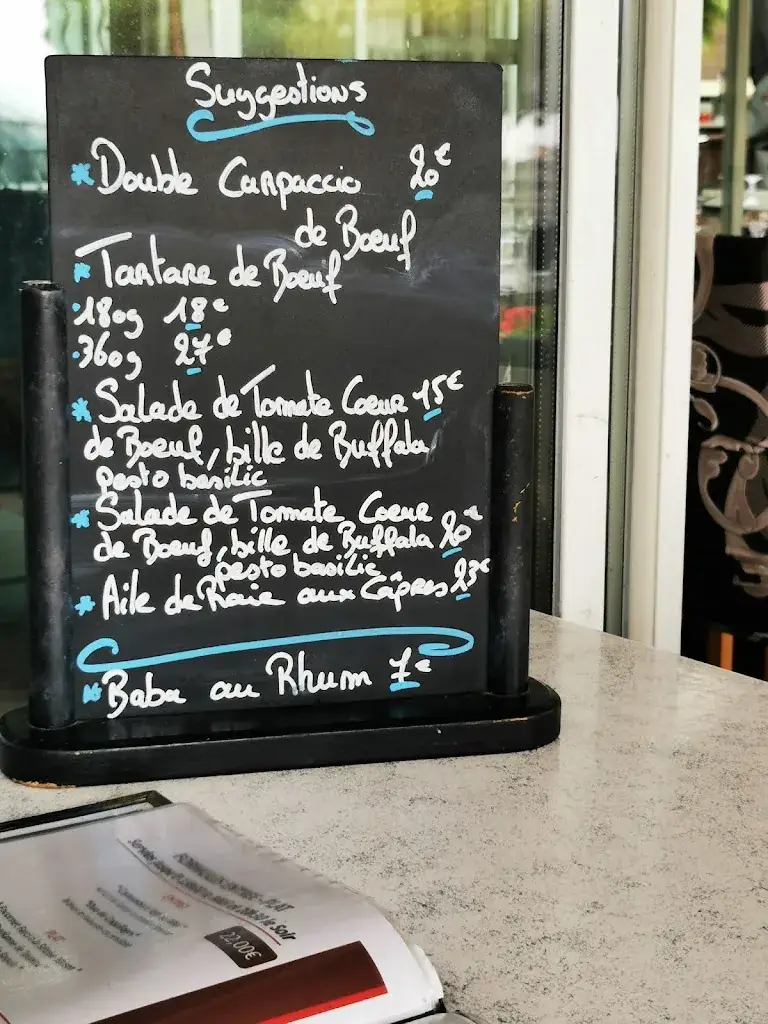 Suggestions
* Double Carpaccio 20€
de Boeuf
* Tartare de Boeuf
• 180g 18€
• 360g 27€
* Salade de Tomate Coeur 15€
de Boeuf, bille de Buffala
pesto basilic
* Salade de Tomate Coeur
de Boeuf, bille de Buffala 20€
pesto basilic
* Aile de Raie aux Câpres 23€
* Baba au Rhum 7€
le Soir
22,00€